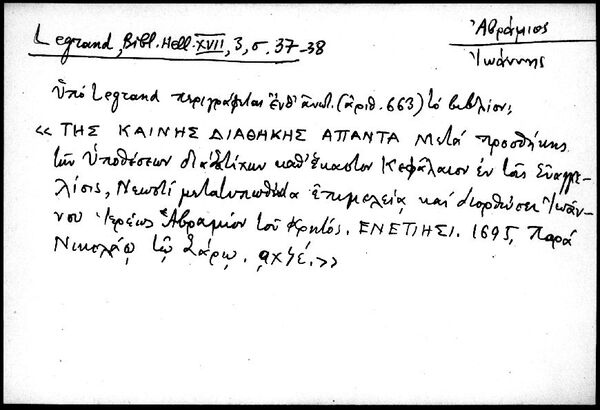 Legrand, Bibl. Hell. XVII, 3, σ. 37-38
Ἀβράμιος
Ἰωάννης
Ὑπὸ Legrand περιγράφεται ἐνθ' ἀνωτ. (ἀριθ. 663) τὸ βιβλίον:
«ΤΗΣ ΚΑΙΝΗΣ ΔΙΑΘΗΚΗΣ ΑΠΑΝΤΑ Μετὰ προσθήκης
τῶν Ὑποθέσεων διὰ στίχων καθ' ἕκαστον Κεφάλαιον ἐν τοῖς Εὐαγγε-
λίοις, Νεωστὶ μετατυπωθέντα ἐπιμελείᾳ καὶ διορθώσει Ἰωάν-
νου Ἱερέως Ἀβραμίου τοῦ Κρητός. ΕΝΕΤΙΗΣΙ. 1695, Παρὰ
Νικολάῳ τῷ Σάρῳ. αχϟέ.»